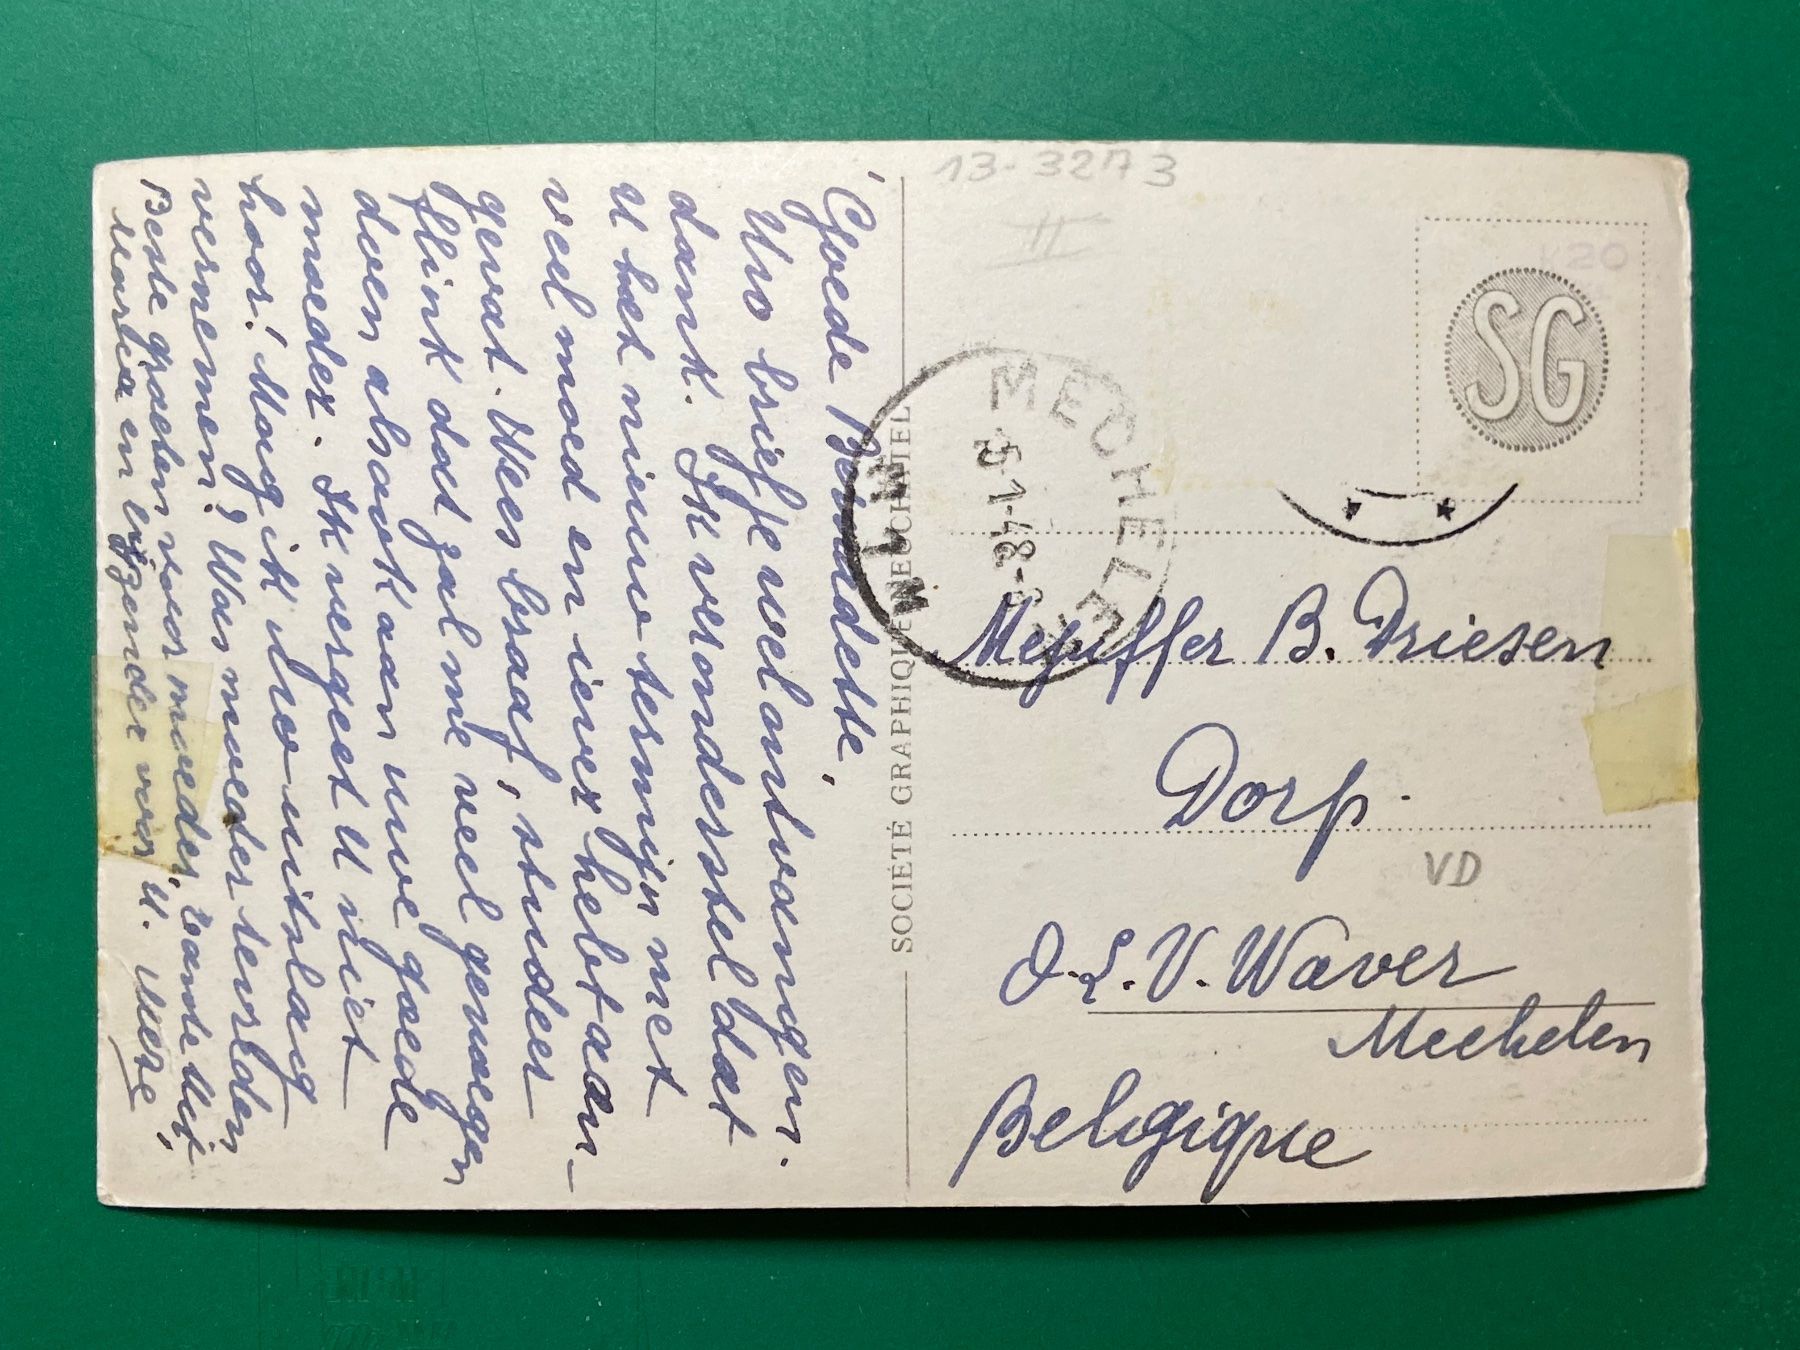 Goede Bernadette,
Uw briefje wel ontvangen.
dank. Ik veronderstel dat
U het nieuw termijn met
veel moed en iever hebt aan-
gevat. Wees braaf, studeer
flink dat zal me veel genoegen
doen alsook aan uwe goede
moeder. Ik vergeet U niet
hoor! Mag ik uw uitslag
vernemen? Was moeder tevreden
Beste groeten voor moeder, tante Mit,
Maria en bizonder voor U.
SOCIÉTÉ GRAPHIQUE NEUCHATEL
13-3273
II
K20
SG
MECHELEN
5-1-48
Mejuffer B. Driesen
Dorp.
VD
O.L.V. Waver
Mechelen
Belgique